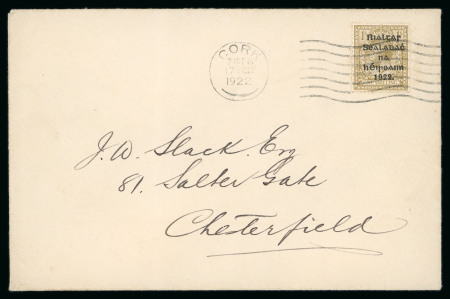 CORK
1922
Rialtas
Sealadać
na
hÉireann
1922.
J. W. Slack. Esq
81. Salter Gate
Chesterfield